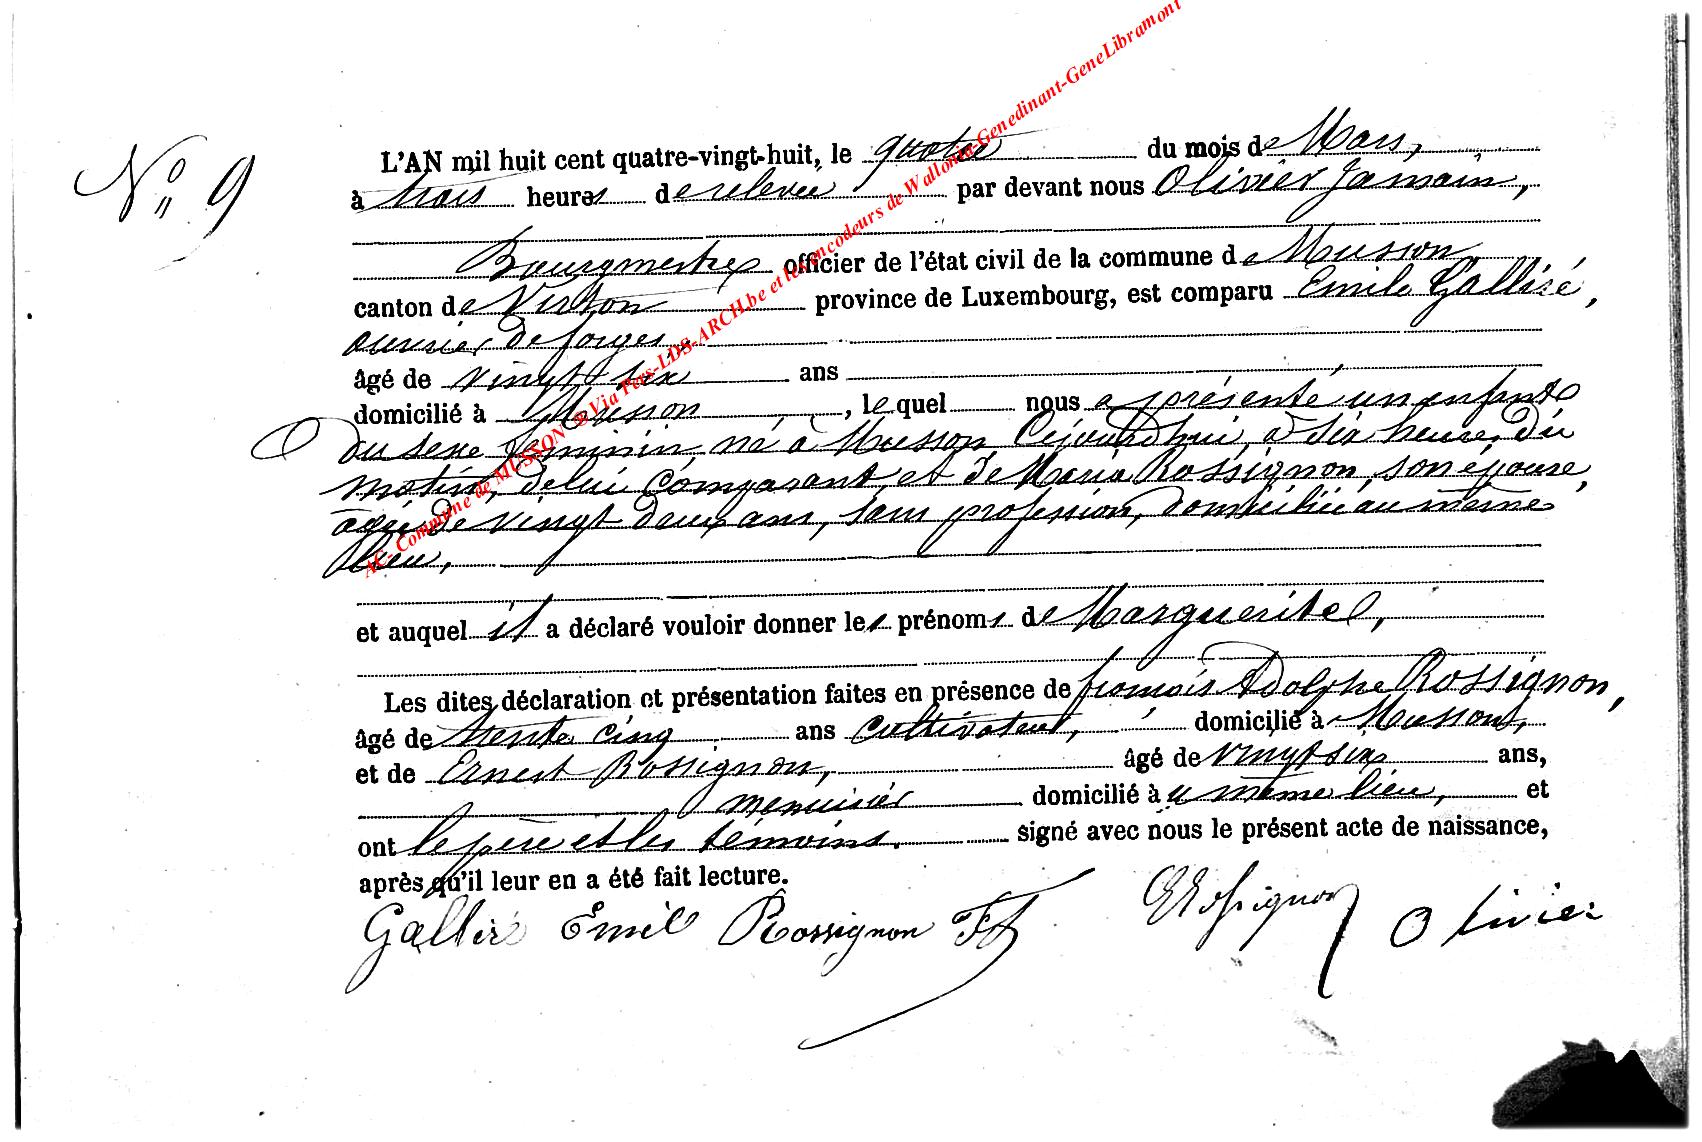 N° 9
L'AN mil huit cent quatre-vingt-huit, le quatre du mois de Mars,
à trois heures de relevée par devant nous Olivier Jamain,
Bourgmestre officier de l'état civil de la commune de Musson
canton de Virton province de Luxembourg, est comparu Emile Gallisé,
ouvrier de forges,
âgé de vingt six ans
domicilié à Musson, lequel nous a présenté un enfant
du sexe féminin, né à Musson Cejourd'hui, à six heures du
matin, de lui Comparant, et de Maria Rossignon, son épouse,
âgée de vingt deux ans, sans profession, domiciliée au même
lieu,
et auquel il a déclaré vouloir donner les prénoms de Marguerite,
Les dites déclaration et présentation faites en présence de françois Adolphe Rossignon,
âgé de trente cinq ans cultivateur, domicilié à Musson,
et de Ernest Rossignon, âgé de vingt six ans,
menuisier domicilié au même lieu, et
ont le père et les témoins. signé avec nous le présent acte de naissance,
après qu'il leur en a été fait lecture.
Gallisé Emile Rossignon FA ERossignon Olivier
AC - Commune de MUSSON @ Via Pers-LDS-ARCH.be et les encodeurs de Wallonia-Genedinant-GeneLibramont